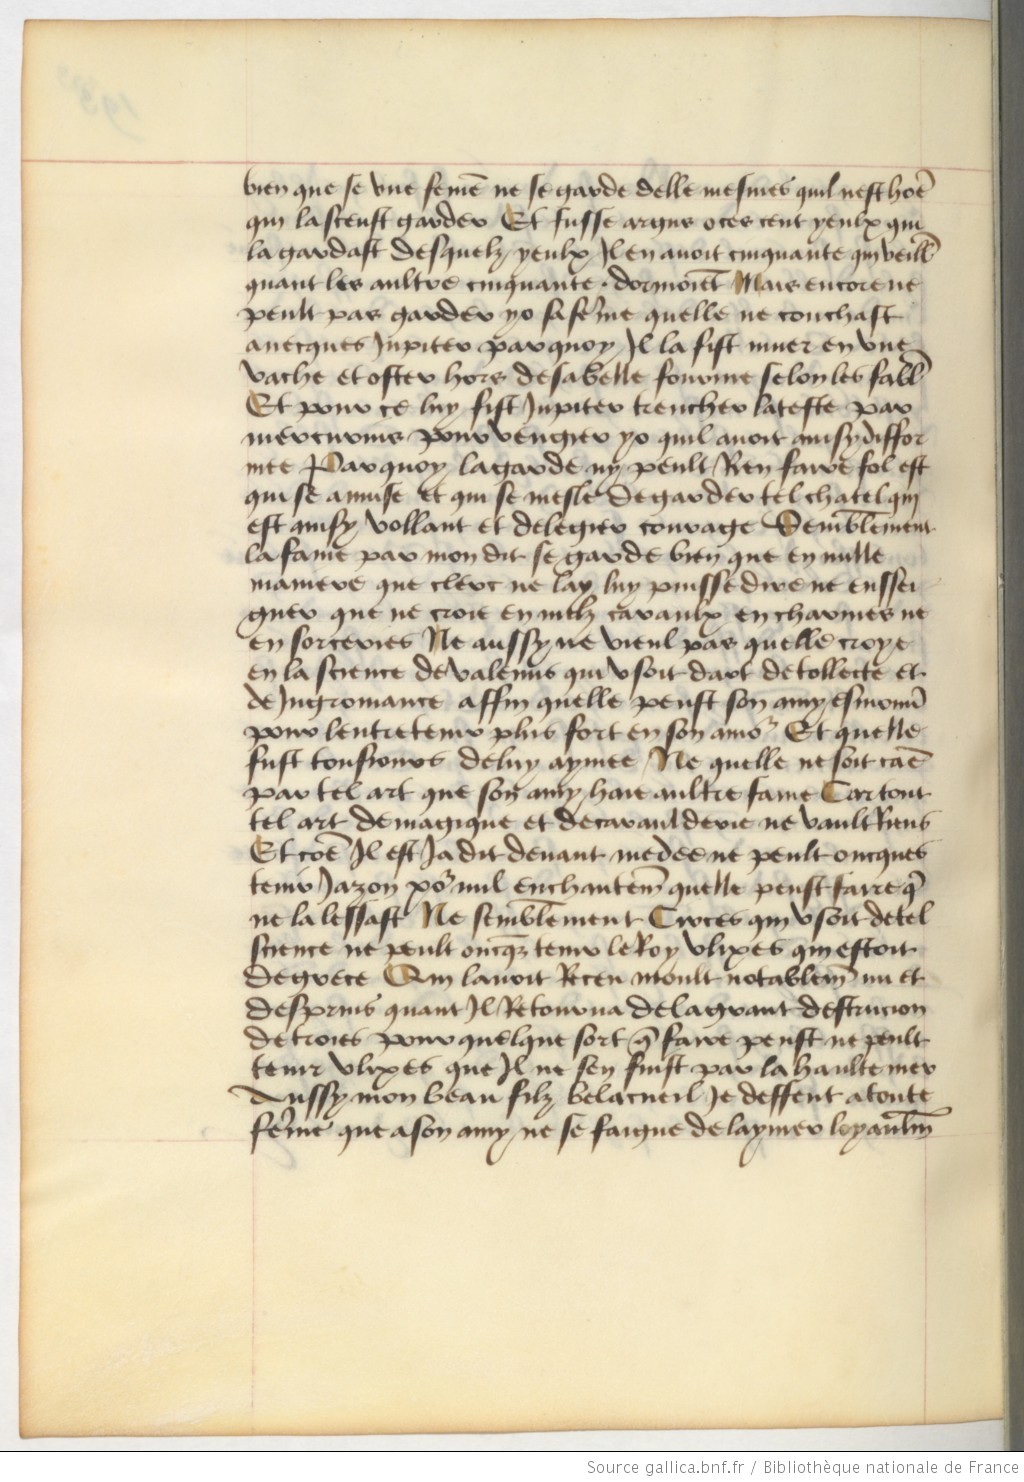 bien que se vne feme̅ ne se garde delle mesmes quil nest hoe̅
qui la sceust garder Et fusse argus o ces cent yeulx qui
la gardast desquelz yeulx Il en auoit cinquante qui veill̅
quant les aultre cinquante · dormoie̅t Mais encore ne
peult pas garder yo sa fe̅me quelle ne couchast
auecques Jupiter parquoy Il la fist muer en vne
vache et oster hors de sa belle fourme selon les fabl̅
Et pour ce luy fist Jupiter trencher la teste par
mercurius pour vengier yo quil auoit ainsy diffor
mee Parquoy la garde ny peult Rien faire fol est
qui se amuse et qui se mesle de garder tel chatel qui
est ainsy vollant et de legier courage Sembl̅ement
la fame par mon dit se garde bien que en nulle
maniere que clerc ne lay luy puisse dire ne ensei
gner que ne croie en nulz caraulx en charmes ne
en sorceries Ne aussy ne vieul pas quelle croye
en la science de valenus qui vsoit dart de tollecte et
de Ingromance affin quelle peust son amy esmouui̅
pour lentretenir plus fort en son amo᷑ Et quelle
fust tousiours de luy aymee Ne quelle ne soit cae̅
par tel art que son amy haie aultre fame Car tout
tel art de magique et de carault derie ne vault Riens
Et coe̅ Il est Ja dit deuant medee ne peult oncques
tenir Jazon po᷑ nul enchantem̅ quelle peust faire q̅
ne la lessast Ne sembl̅ement Circes qui vsoit de tel
science ne peult oncq̅z tenir le Roy vlixes qui estoit
de grece Qui lauoit Receu moult notablem̅ nu et
despris quant Il Retourna de la grant destrucion
de troies pour quelque sort q̅ faire peust ne peult
tenir vlixes que Il ne sen fuist par la haulte mer
Aussy mon beau filz belacueil Je deffent a toute
fe̅me que a son amy ne se faigne de laymer loyaulm̅
Source gallica.bnf.fr / Bibliothèque nationale de France